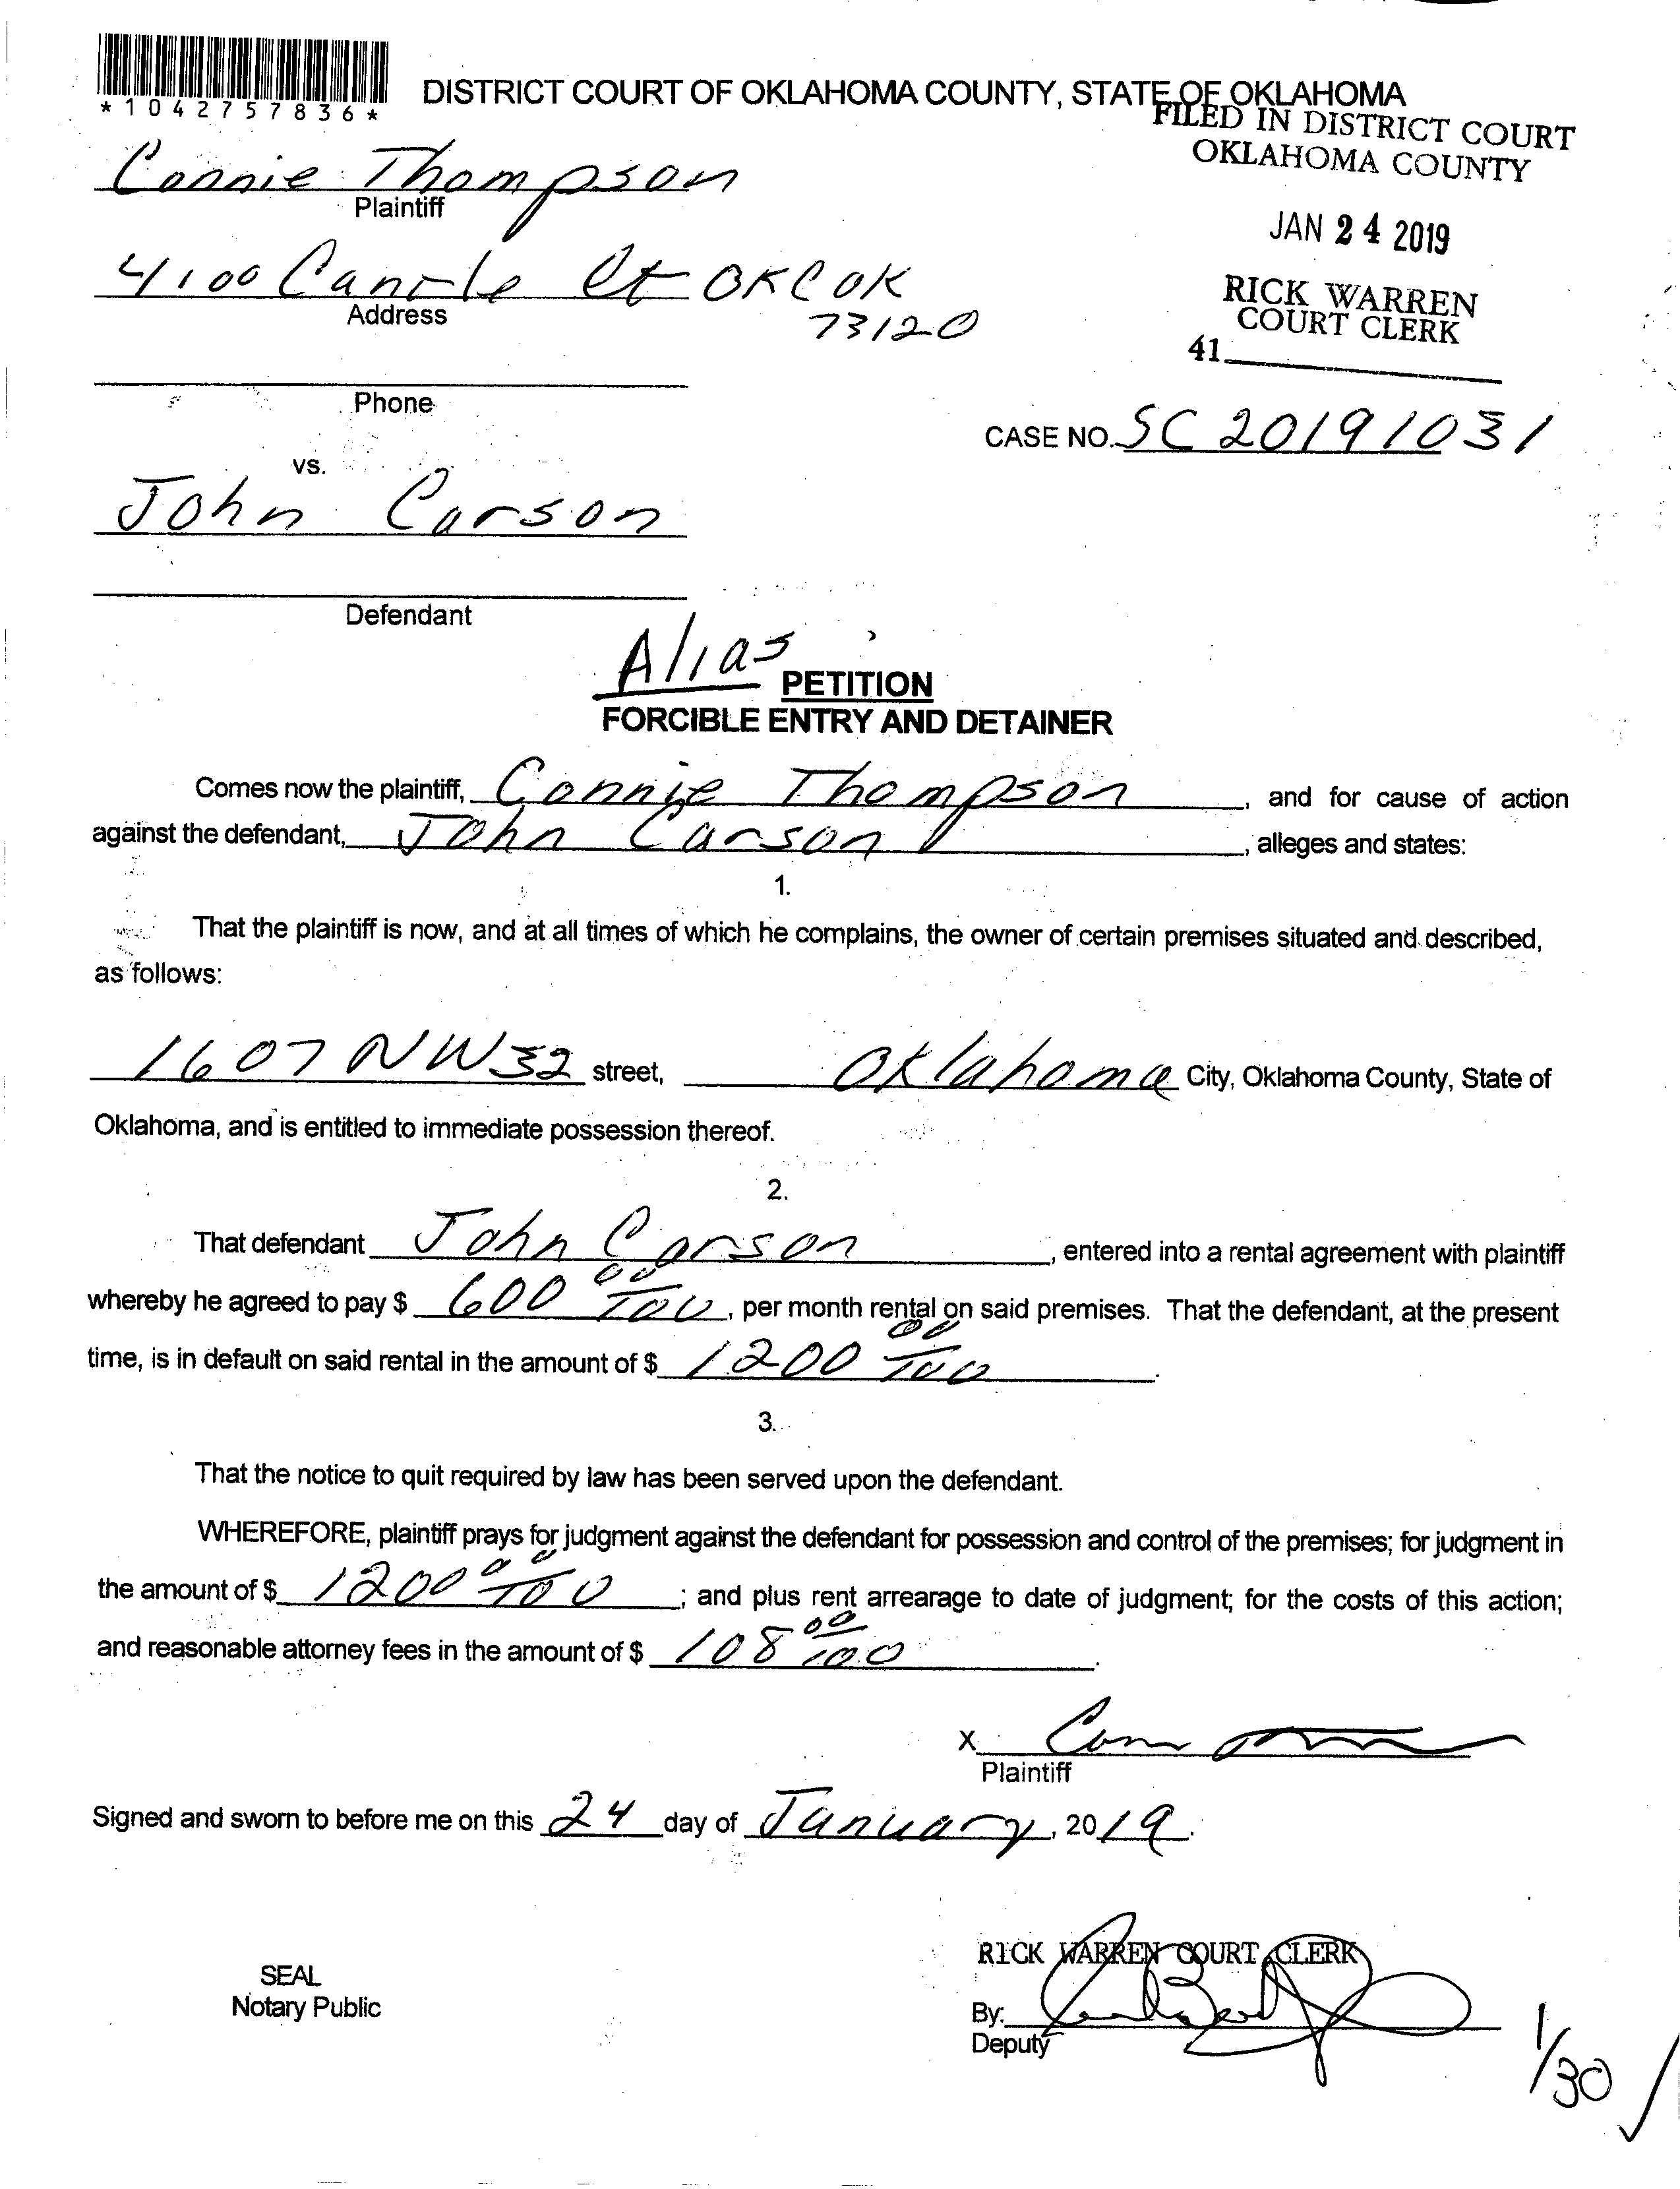 *1042757836*
DISTRICT COURT OF OKLAHOMA COUNTY, STATE OF OKLAHOMA
FILED IN DISTRICT COURT
OKLAHOMA COUNTY
JAN 24 2019
RICK WARREN
COURT CLERK
41
Connie Thompson
Plaintiff
4100 Ct OKC OK
73120
Address
Phone
CASE NO. SC 20191031
vs.
John Carson
Defendant
Alias PETITION
FORCIBLE ENTRY AND DETAINER
Comes now the plaintiff, Connie Thompson, and for cause of action
against the defendant, John Carson, alleges and states:
1.
That the plaintiff is now, and at all times of which he complains, the owner of certain premises situated and described,
as follows:
1607 NW 32 street, Oklahoma City, Oklahoma County, State of
Oklahoma, and is entitled to immediate possession thereof.
2.
That defendant John Carson, entered into a rental agreement with plaintiff
whereby he agreed to pay $ 600 00/100, per month rental on said premises. That the defendant, at the present
time, is in default on said rental in the amount of $ 1200 00/100.
3.
That the notice to quit required by law has been served upon the defendant.
WHEREFORE, plaintiff prays for judgment against the defendant for possession and control of the premises; for judgment in
the amount of $ 1200 00/100; and plus rent arrearage to date of judgment; for the costs of this action;
and reasonable attorney fees in the amount of $ 108 00/100.
X
Plaintiff
Signed and sworn to before me on this 24 day of January, 2019.
SEAL
Notary Public
RICK WARREN COURT CLERK
By:
Deputy
1/30